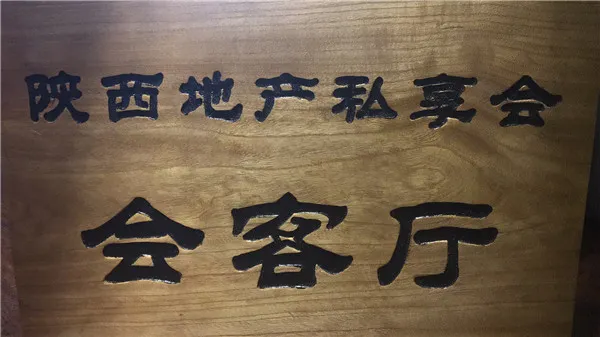 陕西地产私享会
会客厅